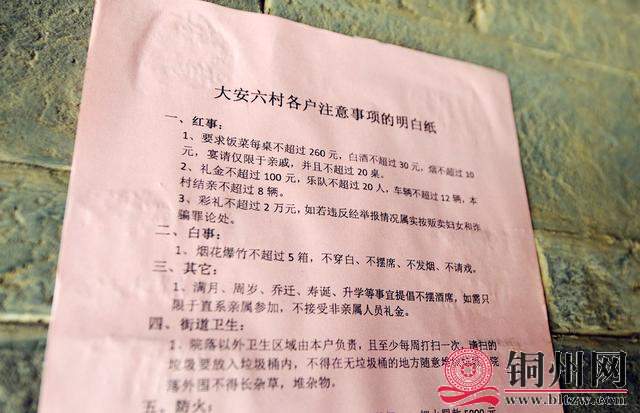 大安六村各户注意事项的明白纸
一、红事：
1、要求饭菜每桌不超过 260 元，白酒不超过 30 元，烟不超过 10
元，宴请仅限于亲戚，并且不超过 20 桌。
2、礼金不超过 100 元，乐队不超过 20 人，车辆不超过 12 辆，本
村结亲不超过 8 辆。
3、彩礼不超过 2 万元，如若违反经举报情况属实按贩卖妇女和诈
骗罪论处。
二、白事：
1、烟花爆竹不超过 5 箱，不穿白、不摆席、不发烟、不请戏。
三、其它：
1、满月、周岁、乔迁、寿诞、升学等事宜提倡不摆酒席，如需只
限于直系亲属参加，不接受非亲属人员礼金。
四、街道卫生：
1、院落以外卫生区域由本户负责，且至少每周打扫一次，清扫的
垃圾要放入垃圾桶内，不得在无垃圾桶的地方随意堆
院
落外围不得长杂草，堆杂物。
五、防火：
5000 元
铜州网
www.bltzw.com